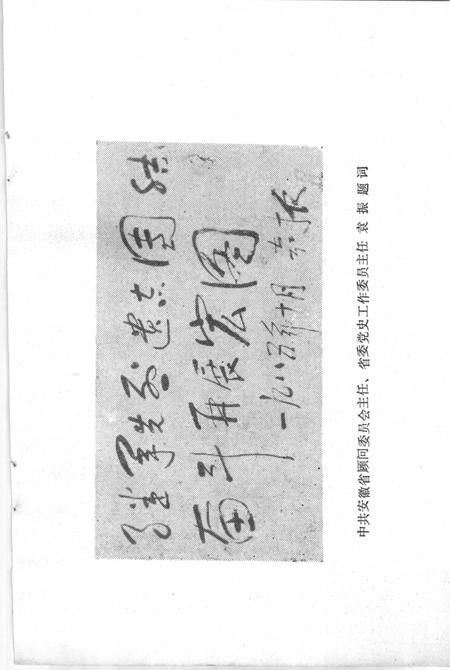 继承先烈遗志团结
奋斗再展宏图
一九八五年十月 袁振
中共安徽省顾问委员会主任、省委党史工作委员主任 袁 振 题 词